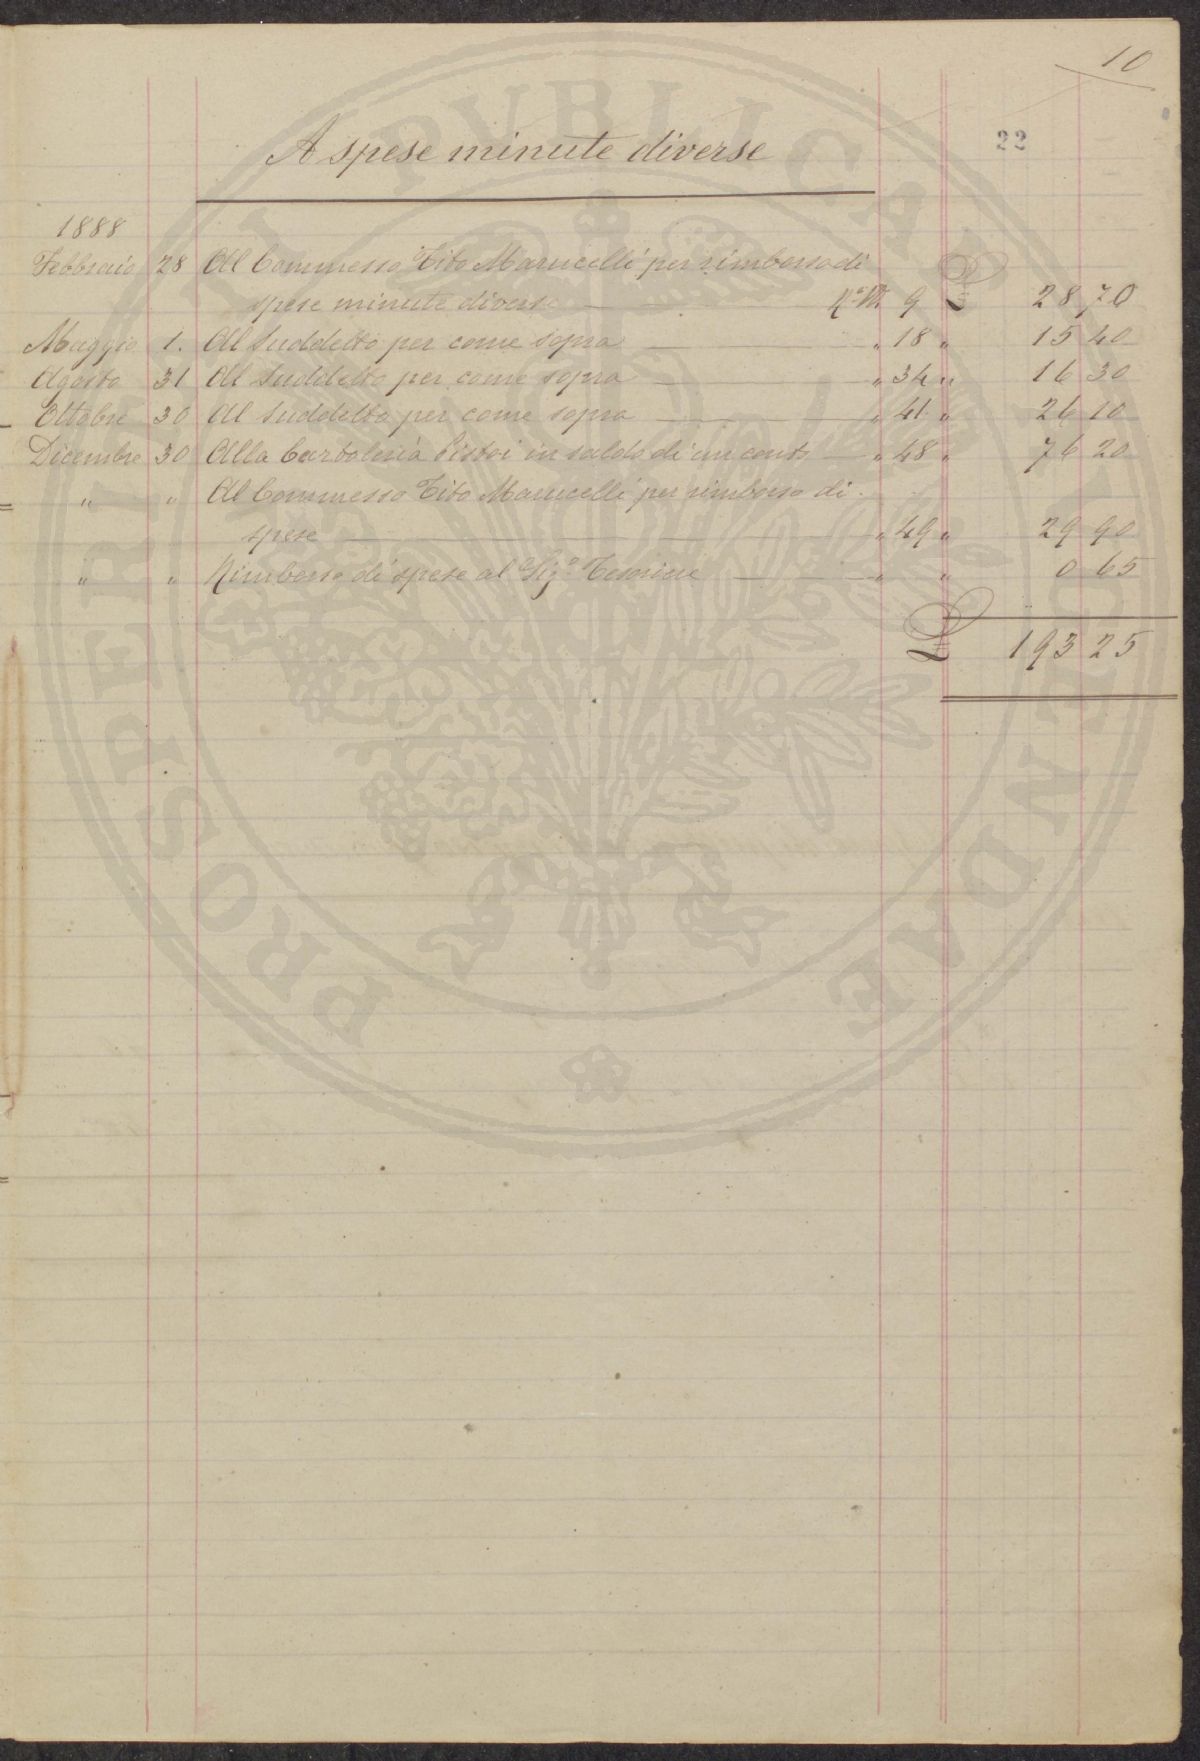 10
22
A spese minute diverse
1888
Febbraio 28 Al Commesso Tito Marucelli per rimborso di
spese minute diverse N.° M. 9 £ 28 70
Maggio 1. Al Suddetto per come sopra " 18 " 15 40
Agosto 31 Al Suddetto per come sopra " 34 " 16 30
Ottobre 30 Al Suddetto per come sopra " 41 " 26 10
Dicembre 30 Alla Cartoleria Pistoi in saldo di un conto " 48 " 76 20
" " Al Commesso Tito Marucelli per rimborso di
spese " 49 " 29 90
" " Rimborso di spese al Sig.e Tesoriere " " 0 65
£ 193 25
PROSPERITATI PUBLICAE AUGENDAE